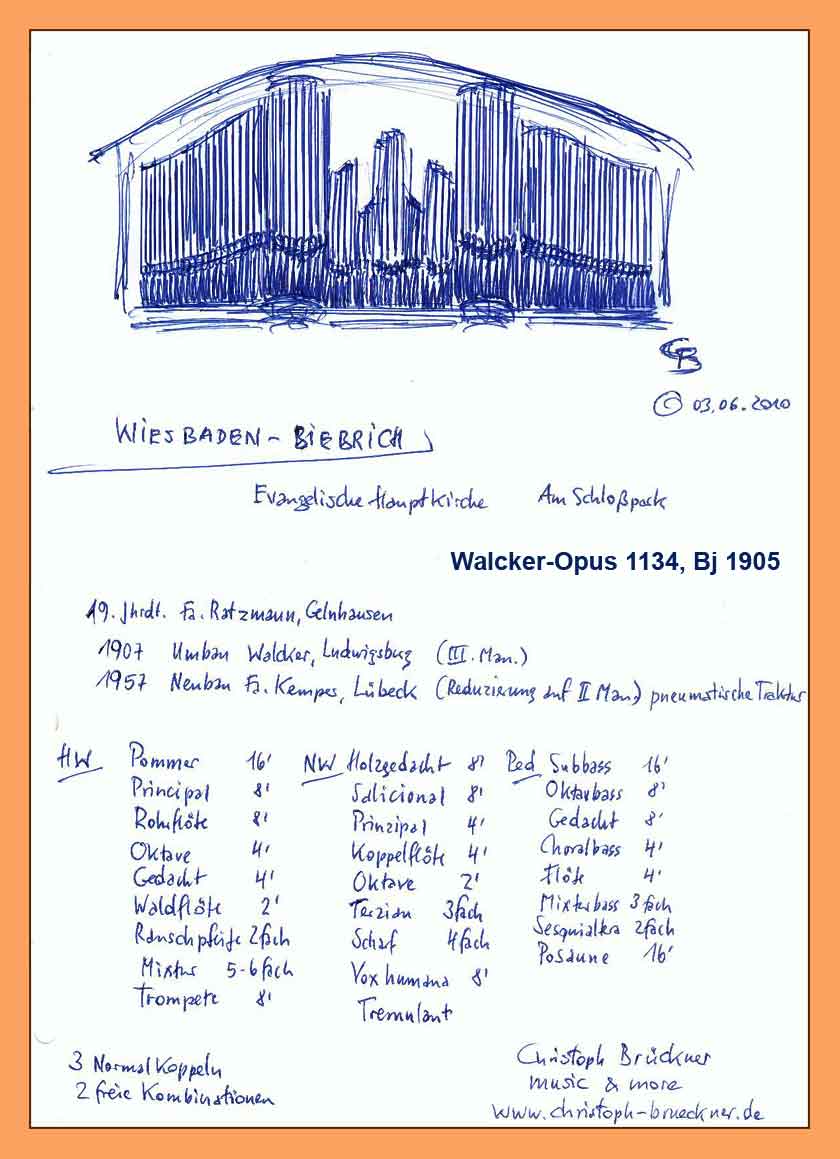 CB
© 03.06.2010
WIESBADEN - BIEBRICH
Evangelische Hauptkirche Am Schloßpark
Walcker-Opus 1134, Bj 1905
19. Jhrdt. Fa. Ratzmann, Gelnhausen
1907 Umbau Walcker, Ludwigsburg (III. Man.)
1957 Neubau Fa. Kemper, Lübeck (Reduzierung auf II Man.) pneumatische Traktur
HW Pommer 16' NW Holzgedackt 8' Ped Subbass 16'
Principal 8' Salicional 8' Oktavbass 8'
Rohrflöte 8' Prinzipal 4' Gedackt 8'
Oktave 4' Koppelflöte 4' Choralbass 4'
Gedackt 4' Oktave 2' Flöte 4'
Waldflöte 2' Terzian 3fach Mixturbass 3fach
Rauschpfeife 2fach Scharf 4fach Sesquialtera 2fach
Mixtur 5-6fach Vox humana 8' Posaune 16'
Trompete 8' Tremulant
3 Normalkoppeln
2 freie Kombinationen
Christoph Brückner
music & more
www.christoph-brueckner.de